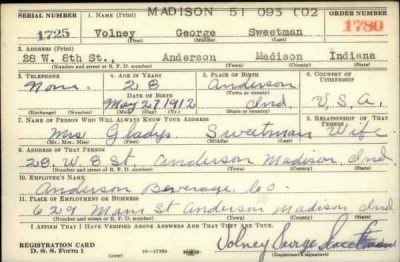 MADISON 51 093 002
SERIAL NUMBER 1. NAME (Print) ORDER NUMBER
1725 Volney George Sweetman 1780
(First) (Middle) (Last)
2. ADDRESS (Print)
28 W. 8th St., Anderson Madison Indiana
(Number and street or R. F. D. number) (Town) (County) (State)
3. TELEPHONE 4. AGE IN YEARS 5. PLACE OF BIRTH 6. COUNTRY OF CITIZENSHIP
None 28 Anderson
DATE OF BIRTH (Town or county)
May 27 1912 Ind. U.S.A.
(Exchange) (Number) (Mo.) (Day) (Yr.) (State or country)
7. NAME OF PERSON WHO WILL ALWAYS KNOW YOUR ADDRESS 8. RELATIONSHIP OF THAT PERSON
Mrs Gladys Sweetman Wife
(Mr., Mrs., Miss) (First) (Middle) (Last)
9. ADDRESS OF THAT PERSON
28. W. 8 St. Anderson Madison, Ind.
(Number and street or R. F. D. number) (Town) (County) (State)
10. EMPLOYER'S NAME
Anderson Beverage Co.
11. PLACE OF EMPLOYMENT OR BUSINESS
629 Main St Anderson Madison Ind
(Number and street or R. F. D. number) (Town) (County) (State)
I AFFIRM THAT I HAVE VERIFIED ABOVE ANSWERS AND THAT THEY ARE TRUE.
REGISTRATION CARD
D. S. S. Form 1 Volney George Sweetman
(Registrant's signature)